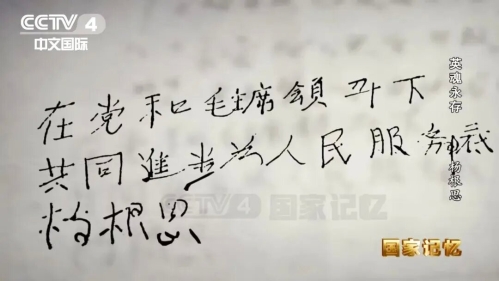 CCTV 4
中文国际
在党和毛主席領 下
共同進步为人民服务
杨根思
CCTV 4 国家记忆
英魂永存 杨根思
国家记忆